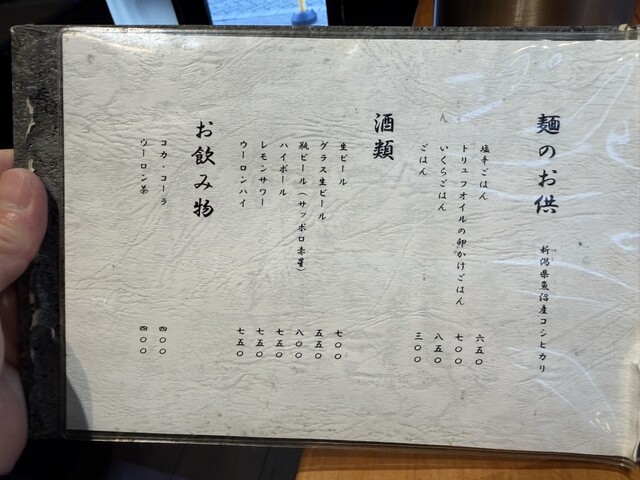 麺のお供
新潟県魚沼産コシヒカリ
塩辛ごはん 六五〇
トリュフオイルの卵かけごはん 七〇〇
いくらごはん 八五〇
ごはん 三〇〇
酒類
生ビール 七〇〇
グラス生ビール 五五〇
瓶ビール(サッポロ赤星) 八〇〇
ハイボール 七五〇
レモンサワー 七五〇
ウーロンハイ 七五〇
お飲み物
コカ・コーラ 四〇〇
ウーロン茶 四〇〇